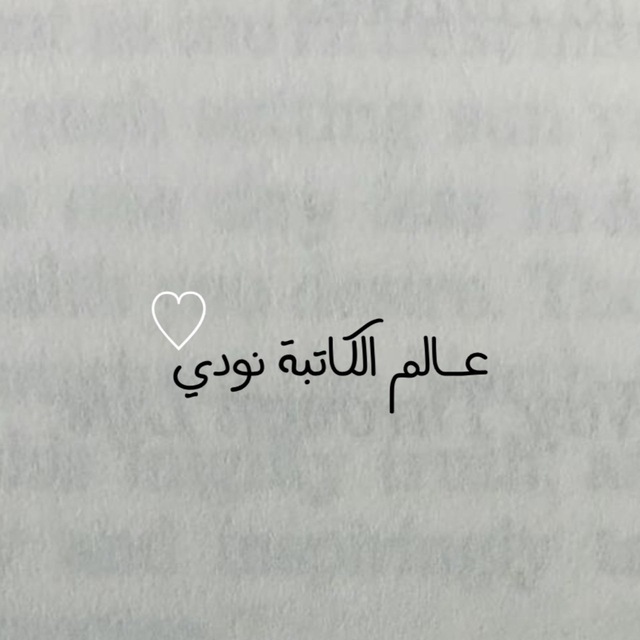 عـالم الكاتبة نودي